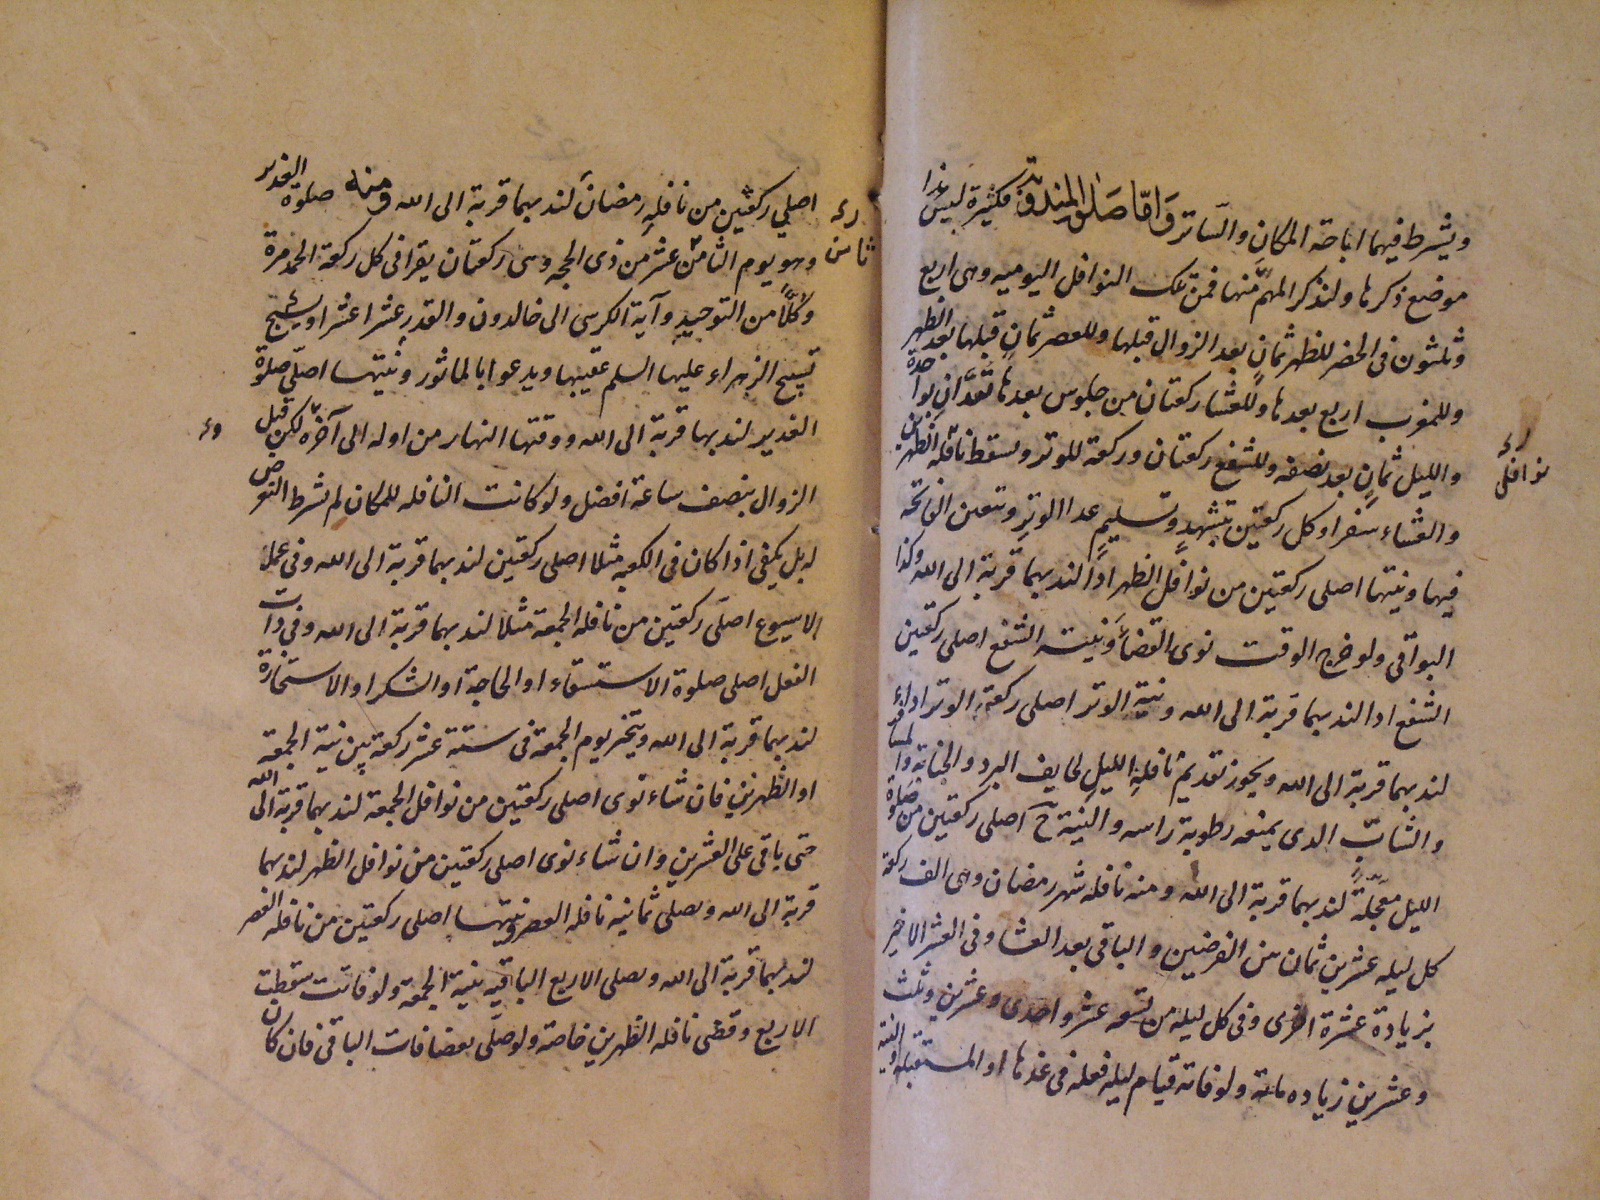 ويشرط فيهما اباحة المكان والساتر وامّا صلوة المندوبة فكثيرة ليس هذا
موضع ذكرها ولنذكر المهمّ منها فمن تلك النوافل اليوميه وهى اربع
وثلثون فى الحضر للظهر ثمانٍ بعد الزوال قبلها وللعصر ثمانٍ قبلها بعد الظهر
وللمغرب اربع بعدها وللعشا ركعتان من جلوس بعدها تعدّان بواحدة
والليل ثمانٍ بعد نصفه وللشفع ركعتان وركعة للوتر وتسقط نافلة الظهرين
والعشاء سفرا وكل ركعتين بتشهدٍ وتسليمٍ عدا الوتر وتتعين الفاتحة
فيها ونيتها اصلى ركعتين من نوافل الظهر اداً لندبهما قربة الى الله وكذا
البواقى ولو خرج الوقت نوى القضاء ونية الشفع اصلى ركعتين
الشفع ادا لندبهما قربة الى الله ونية الوتر اصلى ركعة الوتر اداء
لندبهما قربة الى الله ويجوز تقديم نافلة الليل لخايف البرد والجنابة والمسافر
والشابّ الذى يمنعه رطوبة راسه والنية ح اصلى ركعتين من صلوة
الليل معجّلةً لندبهما قربة الى الله ومنه نافله شهر رمضان وهى الف ركعة
كل ليله عشرين ثمان بين الفرضين والباقى بعد العشا وفى العشر الاخير
بزيادة عشرة اخرى وفى كل ليلة من تسعه عشر واحدى وعشرين وثلث
وعشرين زياده مائة ولو فاته قيام ليله فعله فى غدها او المستقبله والنية
نوافل
اصلي ركعتين من نافلة رمضان لندبهما قربة الى الله ومنه صلوة الغدير
وهو يوم الثامن عشر من ذى الحجه وهى ركعتان يقرا فى كل ركعة الحمد مرة
وكلًّا من التوحيد وآية الكرسى الى خالدون والقدر عشرا عشرا ويسبح
تسبيح الزهراء عليها السلم عقيبها ويدعوا بالماثور ونيتها اصلّي صلوة
الغدير لندبها قربة الى الله ووقتها النهار من اوله الى آخره لكن قبل
الزوال بنصف ساعة افضل ولو كانت النافله للمكان لم يشرط التعرض
له بل يكفى اذا كان فى الكعبه مثلا اصلى ركعتين لندبهما قربة الى الله وفى عمل
الاسبوع اصلّى ركعتين من نافله الجمعة مثلا لندبهما قربة الى الله وفى ذات
الفعل اصلى صلوة الاستسقاء او الحاجة او الشكر او الاستخارة
لندبهما قربة الى الله ويتخير يوم الجمعة فى ستة عشر ركعة بين نية الجمعة
او الظهرين فان شاء نوى اصلى ركعتين من نوافل الجمعة لندبهما قربة الى الله
حتى ياتى على العشرين وان شاء نوى اصلى ركعتين من نوافل الظهر لندبهما
قربة الى الله ويصلى ثمانيه نافله العصر ونيتها اصلى ركعتين من نافله العصر
لندبهما قربة الى الله ويصلى الاربع الباقيه بنية الجمعة ولو فاتت سقطت
الاربع وقضى نافله الظهرين خاصة ولو صلّى بعضا فات الباقى فان كان
ثامن